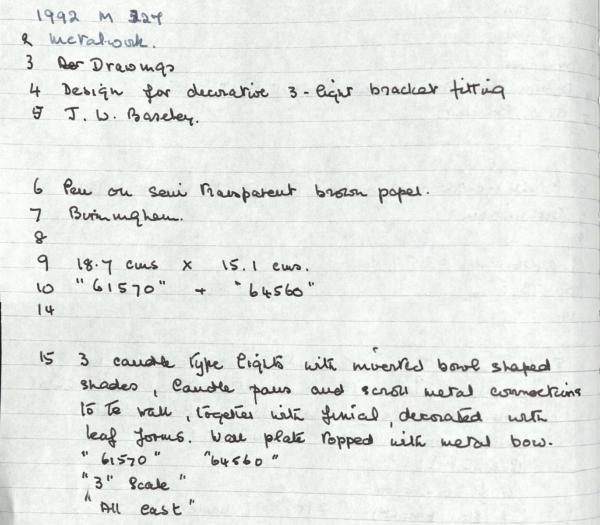 1992 M 327
2 Metalwork.
3 Drawings
4 Design for decorative 3-light bracket fitting
5 J. W. Baseley.
6 Pen on semi transparent brown paper.
7 Birmingham.
8
9 18.7 cms x 15.1 cms.
10 "61570" + "64560"
14
15 3 candle type lights with inverted bowl shaped
shades, candle pans and scroll metal connections
to te wall, together with finial, decorated with
leaf forms. Wall plate topped with metal bow.
"61570" "64560"
"3" Scale"
"All cast"